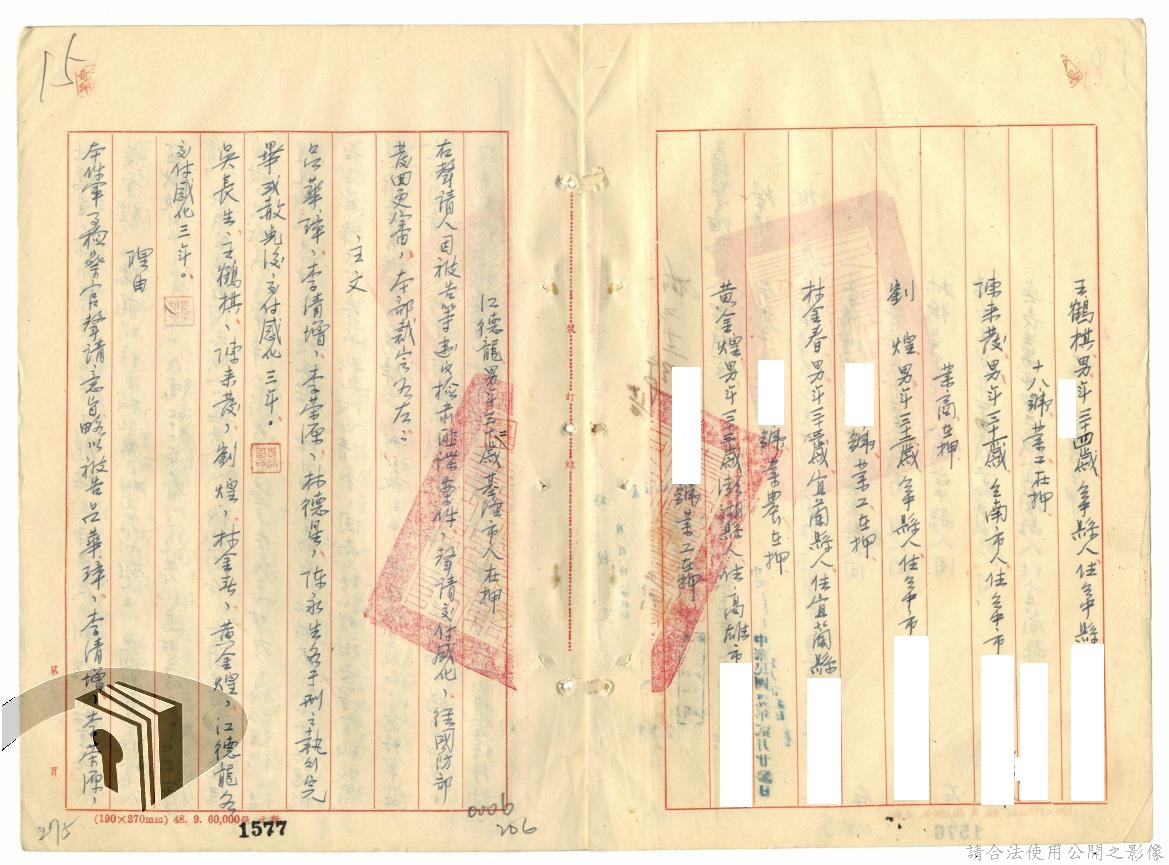 王鶴棋男年三十四歲台中縣人住台中縣
十八號業工在押
陳来發男年三十五歲台南市人住台中市
業商在押
劉 煌男年三十三歲台中縣人住台中市
號業工在押
林金春男年三十三歲宜蘭縣人住宜蘭縣
號業農在押
黃金煌男年三十三歲澎湖縣人住高雄市
號業工在押
江德龍男年三十二歲基隆市人在押
右聲請人因被告等違反檢肅匪諜案件、聲請交付感化、經國防部
發回更審、本部裁定如左：
主文
呂華璋、李清增、李荣源、林德星、陳永生各于刑之執行完
畢或赦免後、交付感化三年。
吳長生、王鶴棋、陳来發、劉煌、林金春、黃金煌、江德龍各
交付感化三年。
理由
本件軍事檢察官聲請意旨略以被告呂華璋、李清增、李荣源、
15
第
頁
(190×270mm) 48. 9. 60,000
1577
275
0006
266
裝
訂
線
請合法使用公開之影像